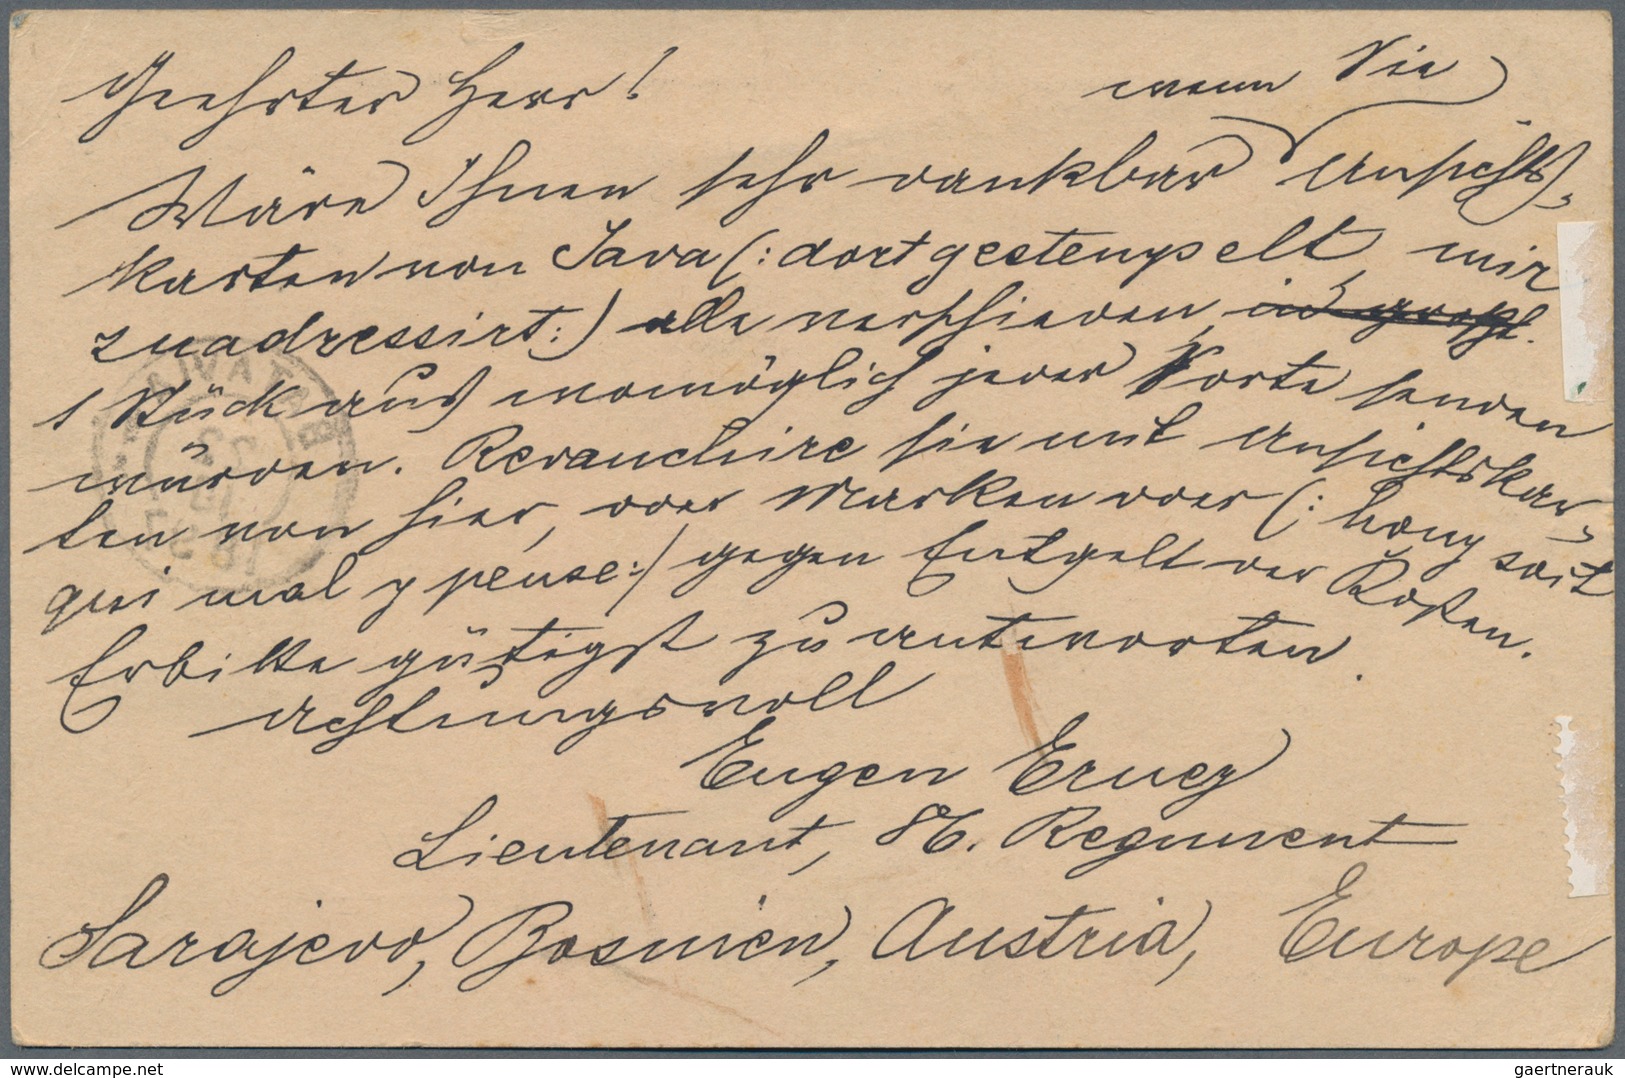 Geehrter Herr!
wenn Sie
Wäre Ihnen sehr dankbar Ansichts-
karten von Java (: dort gestempelt, mir
zuadressirt :) alle verschieden,
1 Stück aus womöglich jeder Sorte senden
würden. Revanchire sie mit Ansichtskar-
ten von hier, oder Marken oder (: hony soit
qui mal y pense :) gegen Entgelt der Kosten.
Erbitte gütigst zu antworten.
Achtungsvoll
Eugen
Lieutenant, 86. Regiment
Sarajevo, Bosnien, Austria, Europe
delcampe.net
gaertnerauk